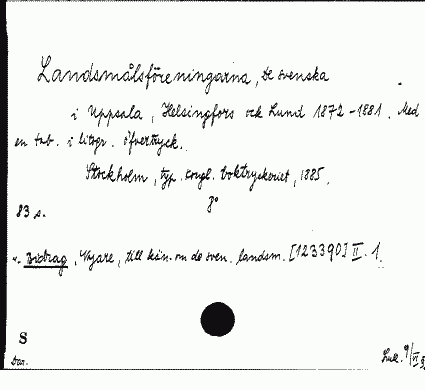 Landsmålsföreningarna, De svenska
i Uppsala, Helsingfors och Lund 1872-1881. Med
en tab. i litogr. öfvertryck.
Stockholm, typ. congl. boktryckeriet, 1885.
8°
83 s.
Bidrag, Nyare, till kän. om de sven. landsm. [123390] II. 1.
S